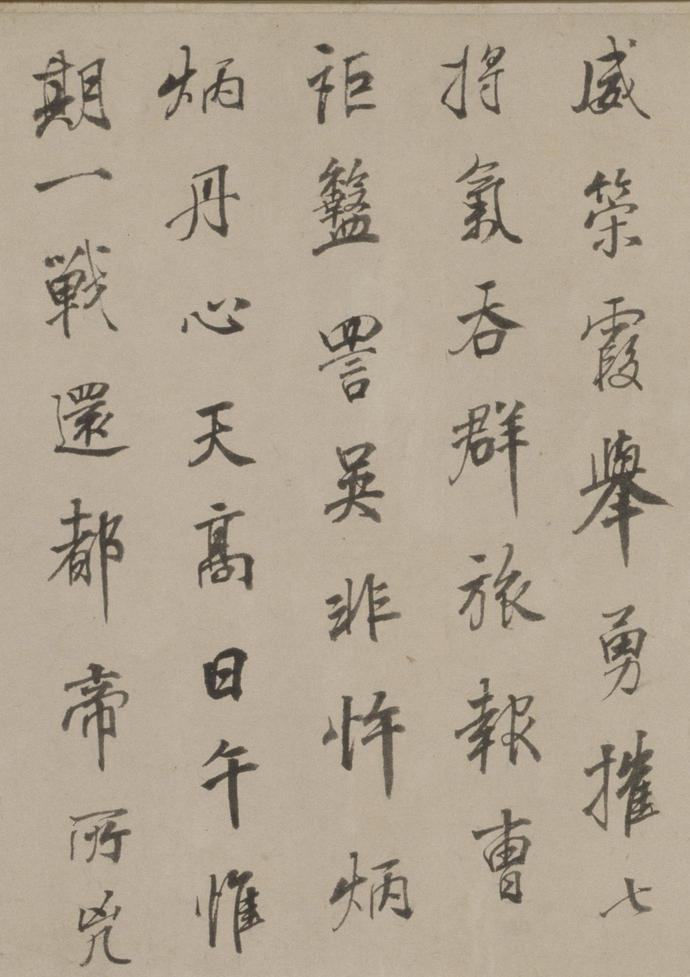 威策霞舉勇摧七
將氣吞群旅報曹
詎盭詈吳非忤炳
炳丹心天高日午惟
期一戰還都帝所兇